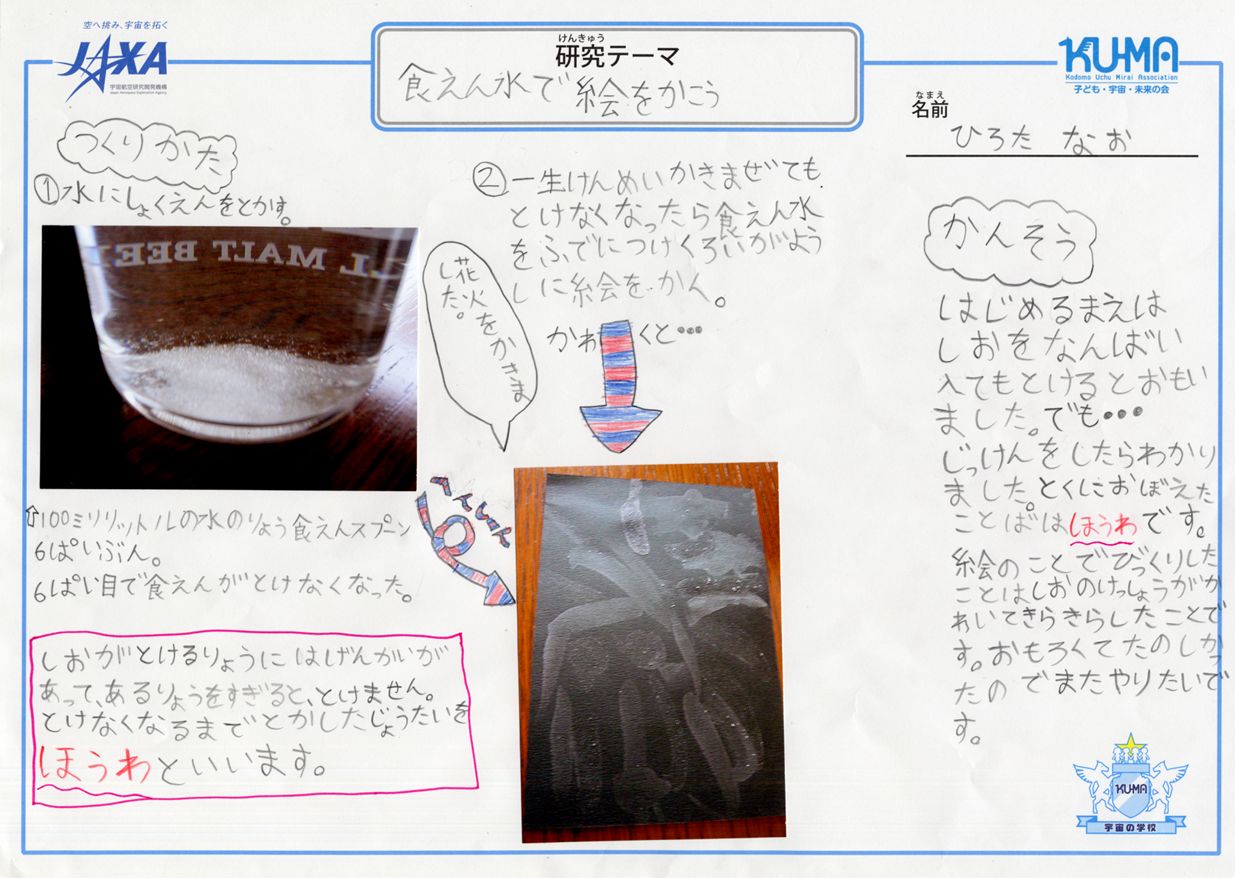 空へ挑み、宇宙を拓く
JAXA
宇宙航空研究開発機構
Japan Aerospace Exploration Agency
けんきゅう
研究テーマ
食えん水で絵をかこう
KU-MA
Kodomo Uchu Mirai Association
子ども・宇宙・未来の会
なまえ
名前
ひろた なお
つくりかた
①水にしょくえんをとかす。
LL MALT BEE
↑100ミリリットルの水のりょう食えんスプーン
6ぱいぶん。
6ぱい目で食えんがとけなくなった。
しおがとけるりょうにはげんかいが
あって、あるりょうをすぎると、とけません。
とけなくなるまでとかしたじょうたいを
ほうわといいます。
②一生けんめいかきまぜても
とけなくなったら食えん水
をふでにつけくろいがよう
しに絵をかく。
花火をかきま
した。
かわくと・・・
へんしん
かんそう
はじめるまえは
しおをなんばい
入てもとけるとおもい
ました。でも・・・
じっけんをしたらわかり
ました。とくにおぼえた
ことばはほうわです。
絵のことでびっくりした
ことはしおのけっしょうがか
わいてきらきらしたことで
す。おもろくてたのしかっ
たの でまたやりたいで
す。
KU-MA
宇宙の学校